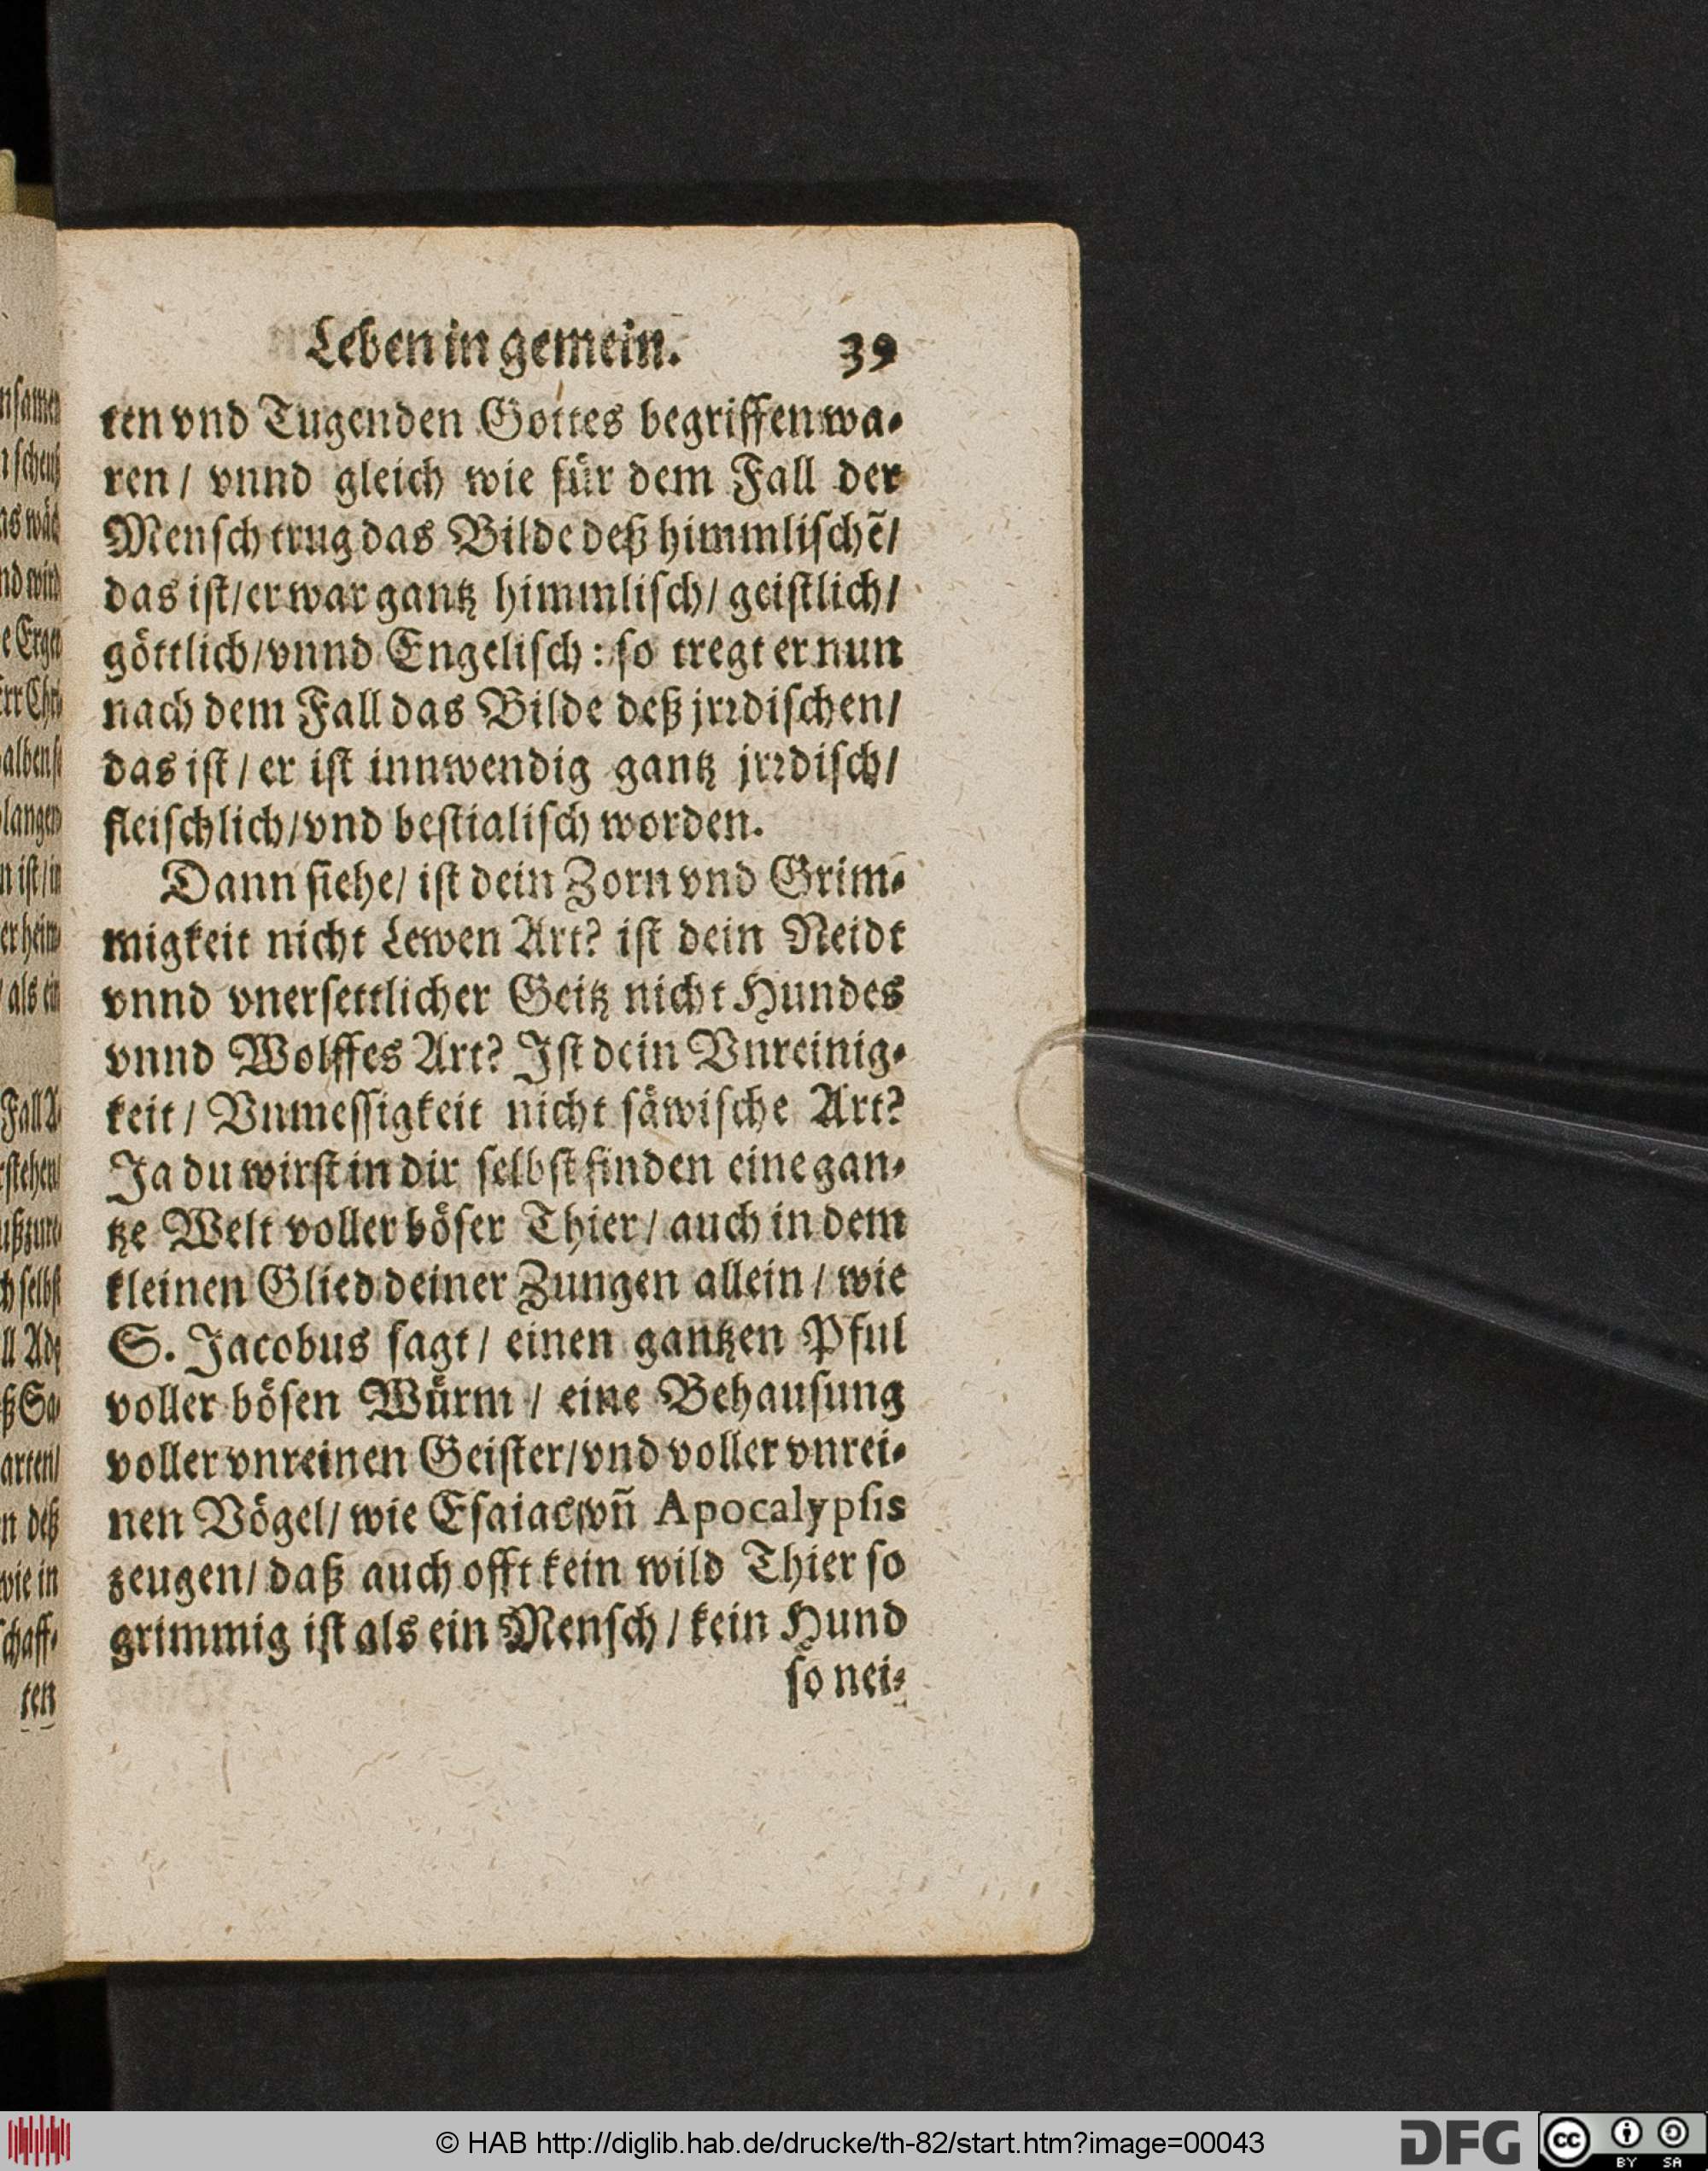 Leben in gemein. 39
ten vnd Tugenden Gottes begriffen wa-
ren / vnnd gleich wie fuͤr dem Fall der
Menſch trug das Bilde deß himmliſchẽ /
das iſt / er war gantz himmliſch / geiſtlich /
goͤttlich / vnnd Engeliſch : ſo tregt er nun
nach dem Fall das Bilde deß jrꝛdiſchen /
das iſt / er iſt innwendig gantz jrꝛdiſch /
fleiſchlich / vnd beſtialiſch worden.
Dann ſiehe / iſt dein Zorn vnd Grim-
migkeit nicht Lewen Art? iſt dein Neidt
vnnd vnerſettlicher Geitz nicht Hundes
vnnd Wolffes Art? Iſt dein Vnreinig-
keit / Vnmeſſigkeit nicht ſaͤwiſche Art?
Ja du wirſt in dir ſelbſt finden eine gan-
tze Welt voller boͤſer Thier / auch in dem
kleinen Glied deiner Zungen allein / wie
S. Jacobus ſagt / einen gantzen Pful
voller boͤſen Wuͤrm / eine Behauſung
voller vnreinen Geiſter / vnd voller vnrei-
nen Voͤgel / wie Eſaias vñ Apocalypſis
zeugen / daß auch offt kein wild Thier ſo
grimmig iſt als ein Menſch / kein Hund
ſo nei-
© HAB http://diglib.hab.de/drucke/th-82/start.htm?image=00043
DFG
cc BY SA